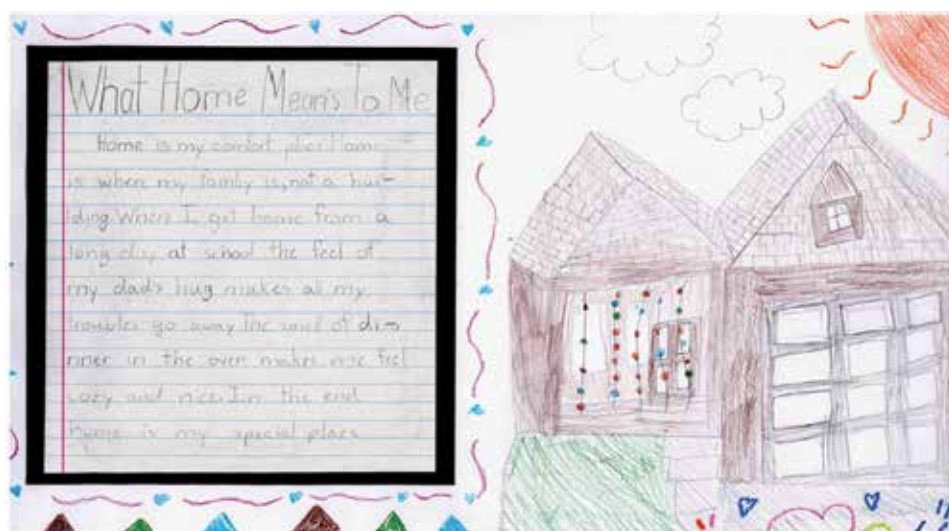 What Home Means To Me
Home is my comfort place. Home
is when my family is, not a bui-
lding. When I get home from a
long day at school the feel of
my dad's hug makes all my
troubles go away. The smell of di-
nner in the oven makes me feel
cozy and nice. In the end
home is my special place